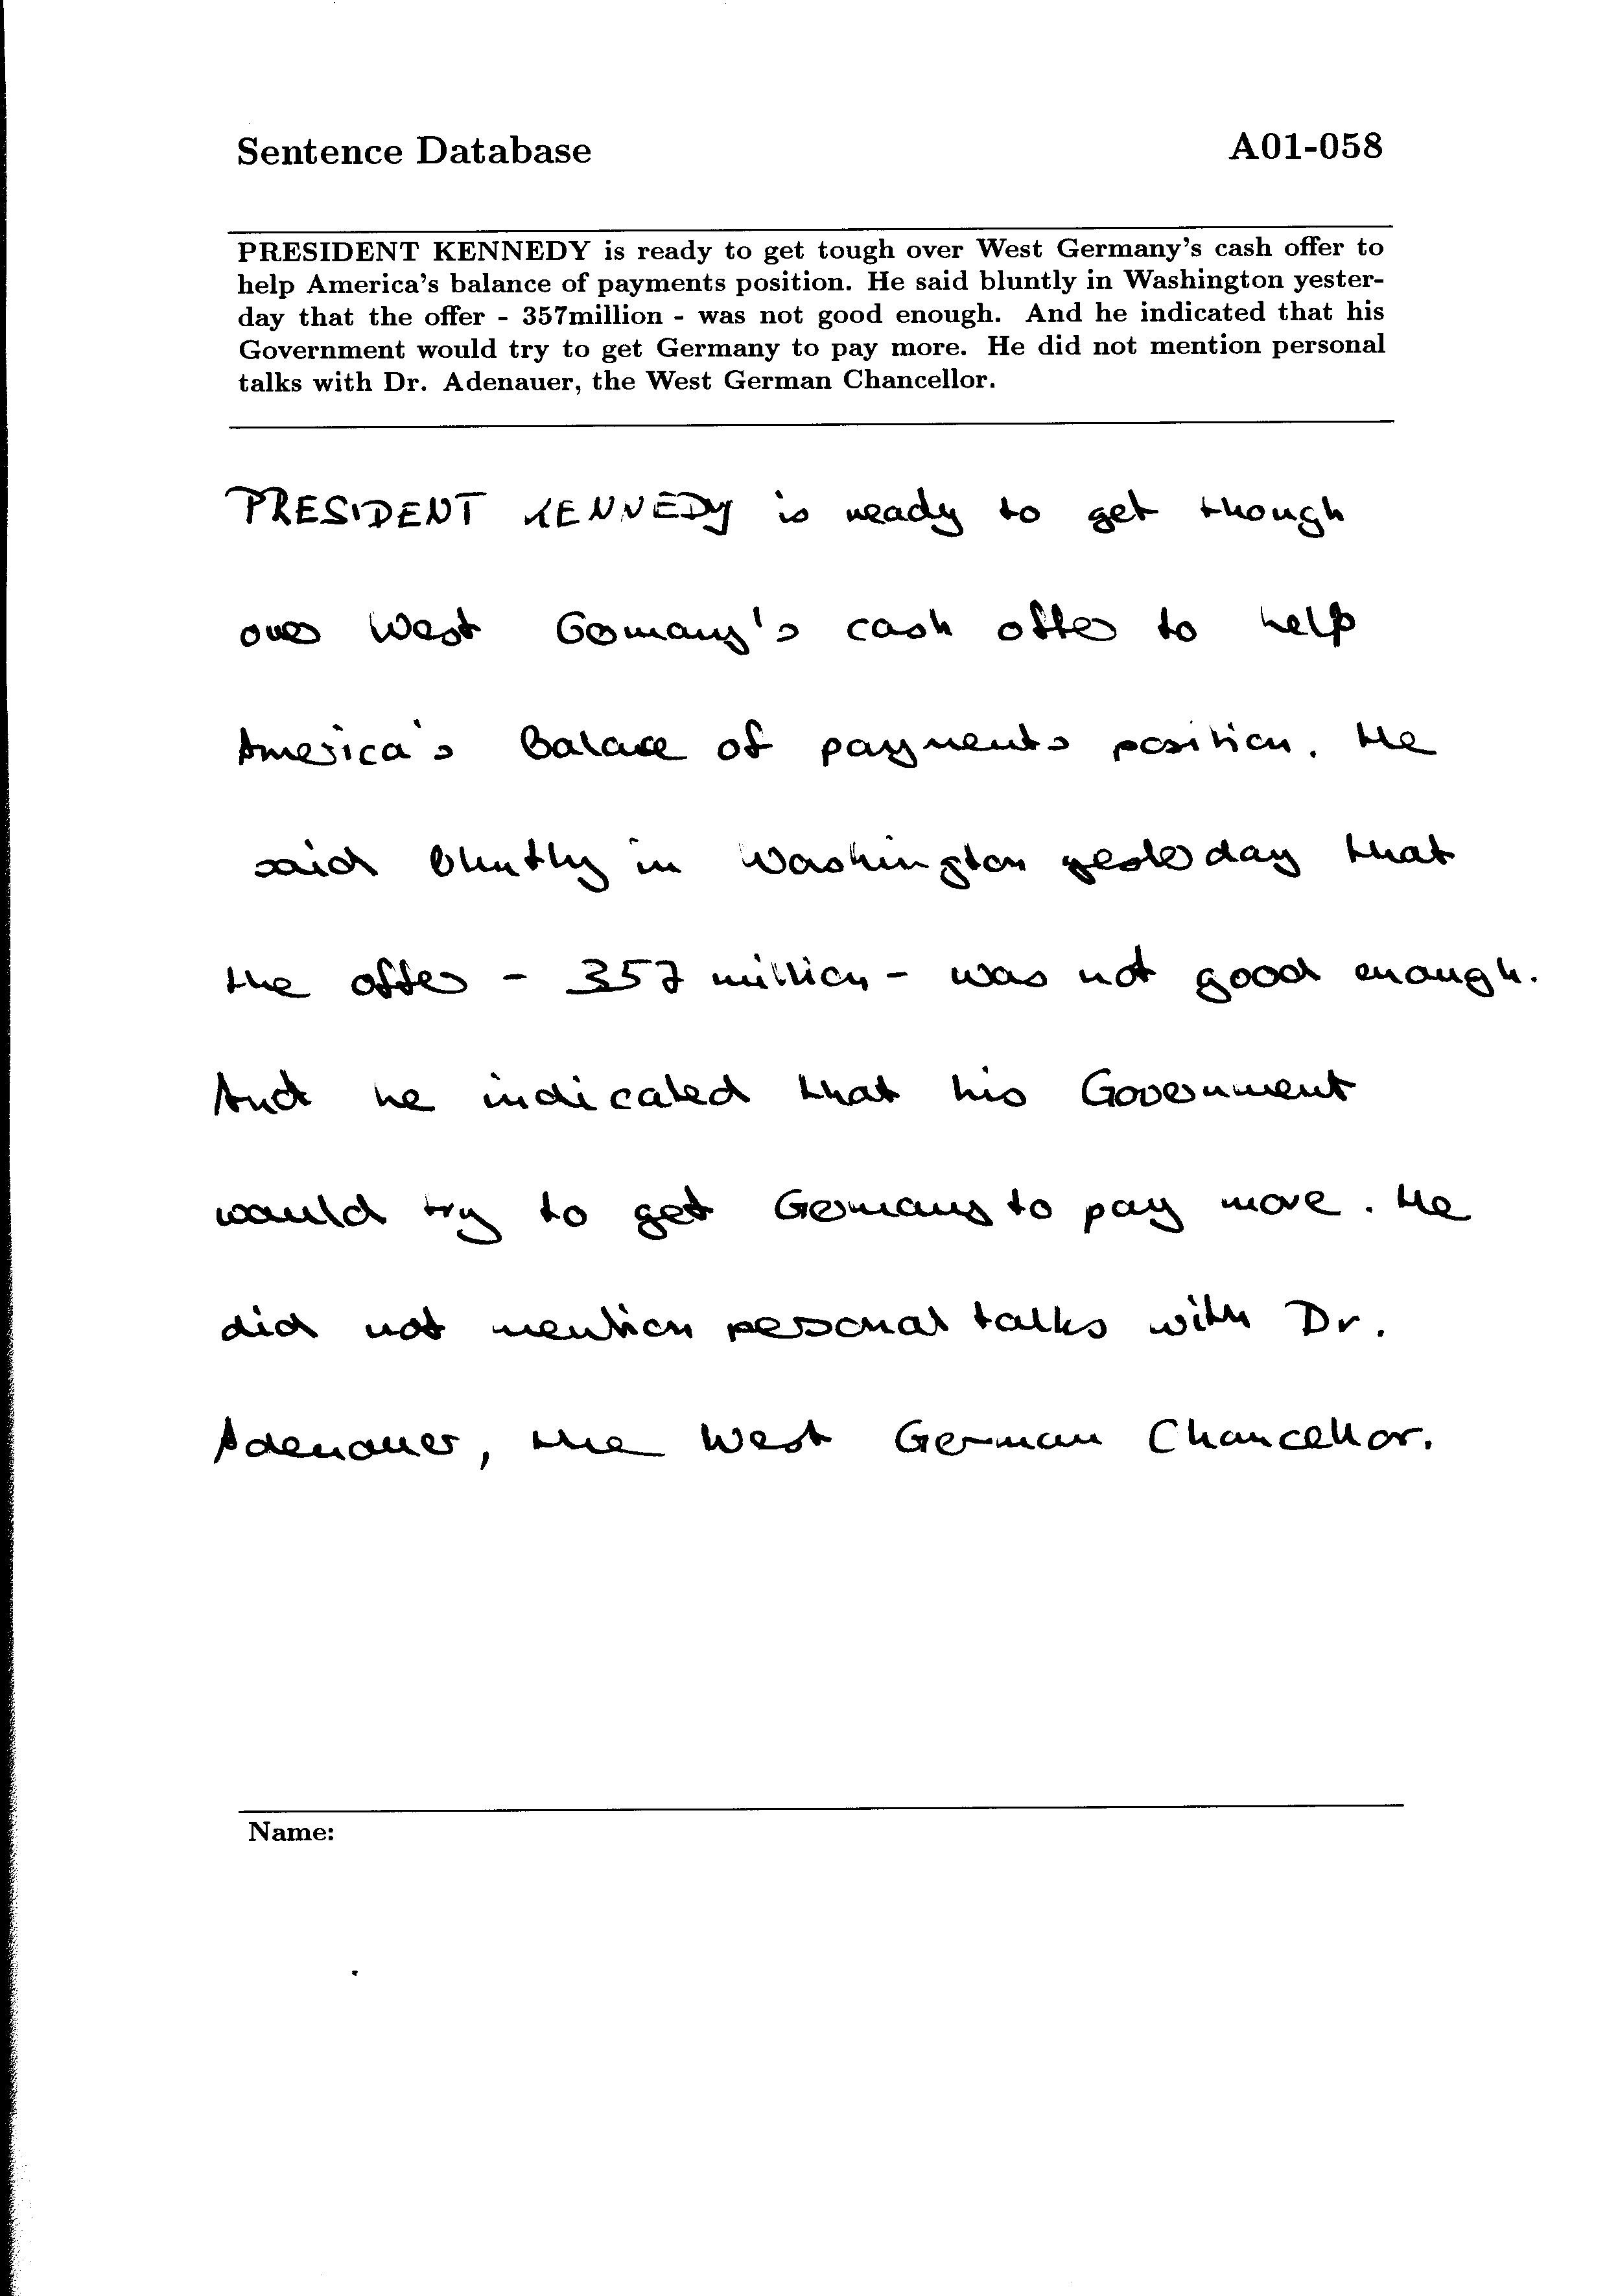 Sentence Database A01-058
PRESIDENT KENNEDY is ready to get tough over West Germany's cash offer to
help America's balance of payments position. He said bluntly in Washington yester-
day that the offer - 357million - was not good enough. And he indicated that his
Government would try to get Germany to pay more. He did not mention personal
talks with Dr. Adenauer, the West German Chancellor.
PRESIDENT KENNEDY is ready to get though
over West Germany's cash offer to help
America's Balace of payments position. He
said bluntly in Washington yesterday that
the offer - 357 million - was not good enough.
And he indicated that his Government
would try to get Germany to pay more. He
did not mention personal talks with Dr.
Adenauer, the West German Chancellor.
Name: